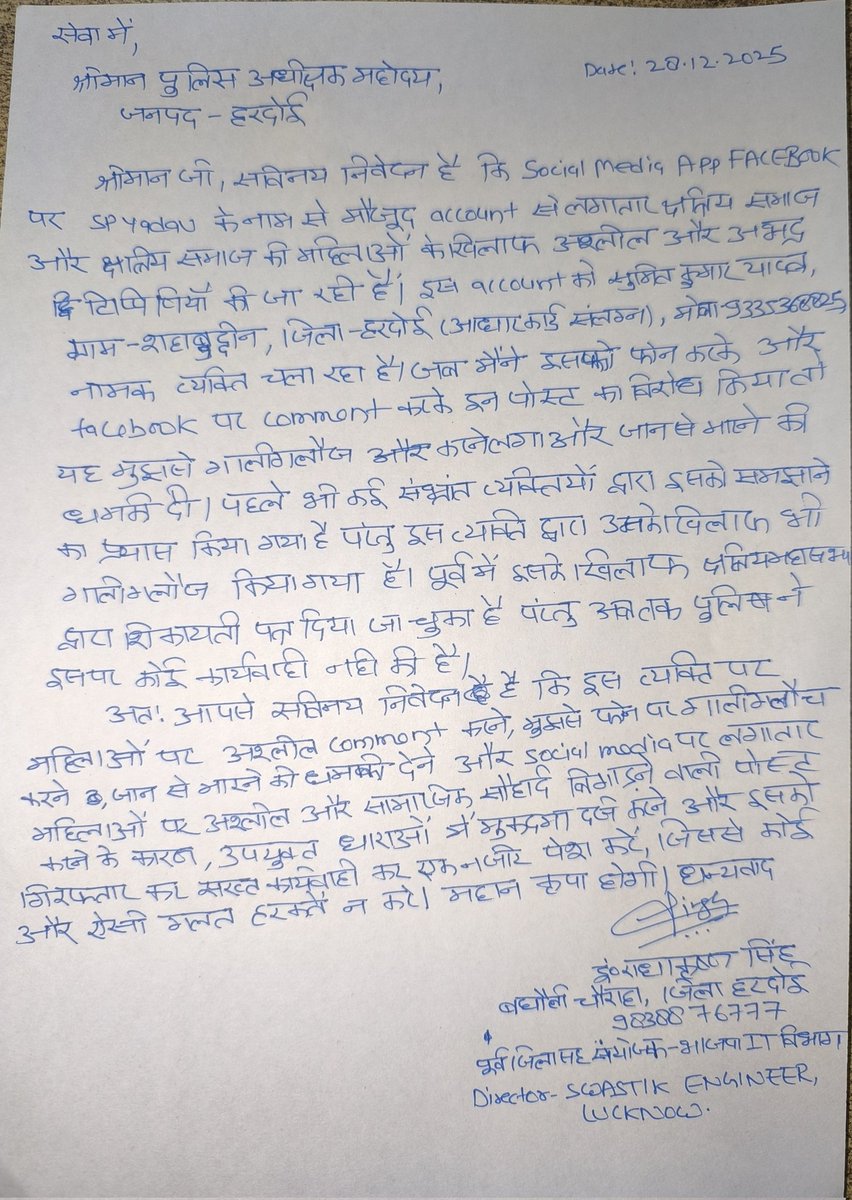 सेवा में,
Date: 28.12.2025
श्रीमान पुलिस अधीक्षक महोदय,
जनपद - हरदोई
श्रीमान जी, सविनय निवेदन है कि Social Media App FACEBOOK
पर SP Yadav के नाम से मौजूद account से लगातार क्षत्रिय समाज
और क्षत्रिय समाज की महिलाओं के खिलाफ अश्लील और अभद्र
टिप्पिणियाँ की जा रही हैं। इस account को सुमित कुमार यादव,
ग्राम-शहाबुद्दीन, जिला-हरदोई (आधारकार्ड संलग्न), मोबा-9335368825
नामक व्यक्ति चला रहा है। जब मैंने इसको फोन करके और
facebook पर comment करके इन पोस्ट का विरोध किया तो
यह मुझसे गालीगलौज और करने लगा और जान से मारने की
धमकी दी। पहले भी कई संभ्रांत व्यक्तियों द्वारा इसको समझाने
का प्रयास किया गया है परंतु इस व्यक्ति द्वारा उनके खिलाफ भी
गालीगलौज किया गया है। पूर्व में इसके खिलाफ क्षत्रिय महासभा
द्वारा शिकायती पत्र दिया जा चुका है परंतु अबतक पुलिस ने
इसपर कोई कार्यवाही नही की है।
अतः आपसे सविनय निवेदन है कि इस व्यक्ति पर
महिलाओं पर अश्लील comment करने, मुझसे फोन पर गालीगलौच
करने, जान से मारने की धमकी देने और social media पर लगातार
महिलाओं पर अश्लील और सामाजिक सौहार्द बिगाड़ने वाली पोस्ट
करने के कारण, उपयुक्त धाराओं में मुकदमा दर्ज करने और इसको
गिरफ्तार कर सख्त कार्यवाही कर एक नजीर पेश करें, जिससे कोई
और ऐसी गलत हरकतें न करे। महान कृपा होगी। धन्यवाद
इं० राधाकृष्ण सिंह
बघौली चौराहा, जिला हरदोई
9838876777
पूर्व जिला सह संयोजक-भाजपा IT विभाग
Director- SWASTIK ENGINEER,
LUCKNOW.